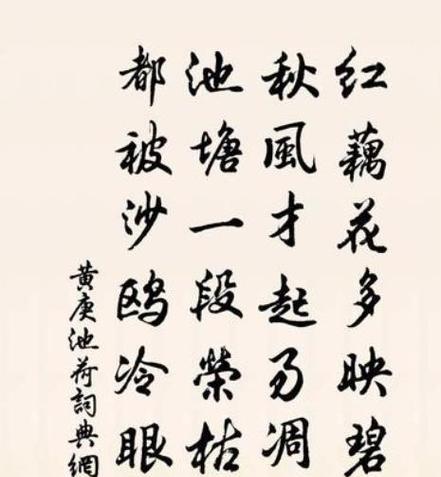 红藕花多映碧
秋風才起易凋
池塘一段榮枯
都被沙鸥冷眼
黄庚池荷詞典網